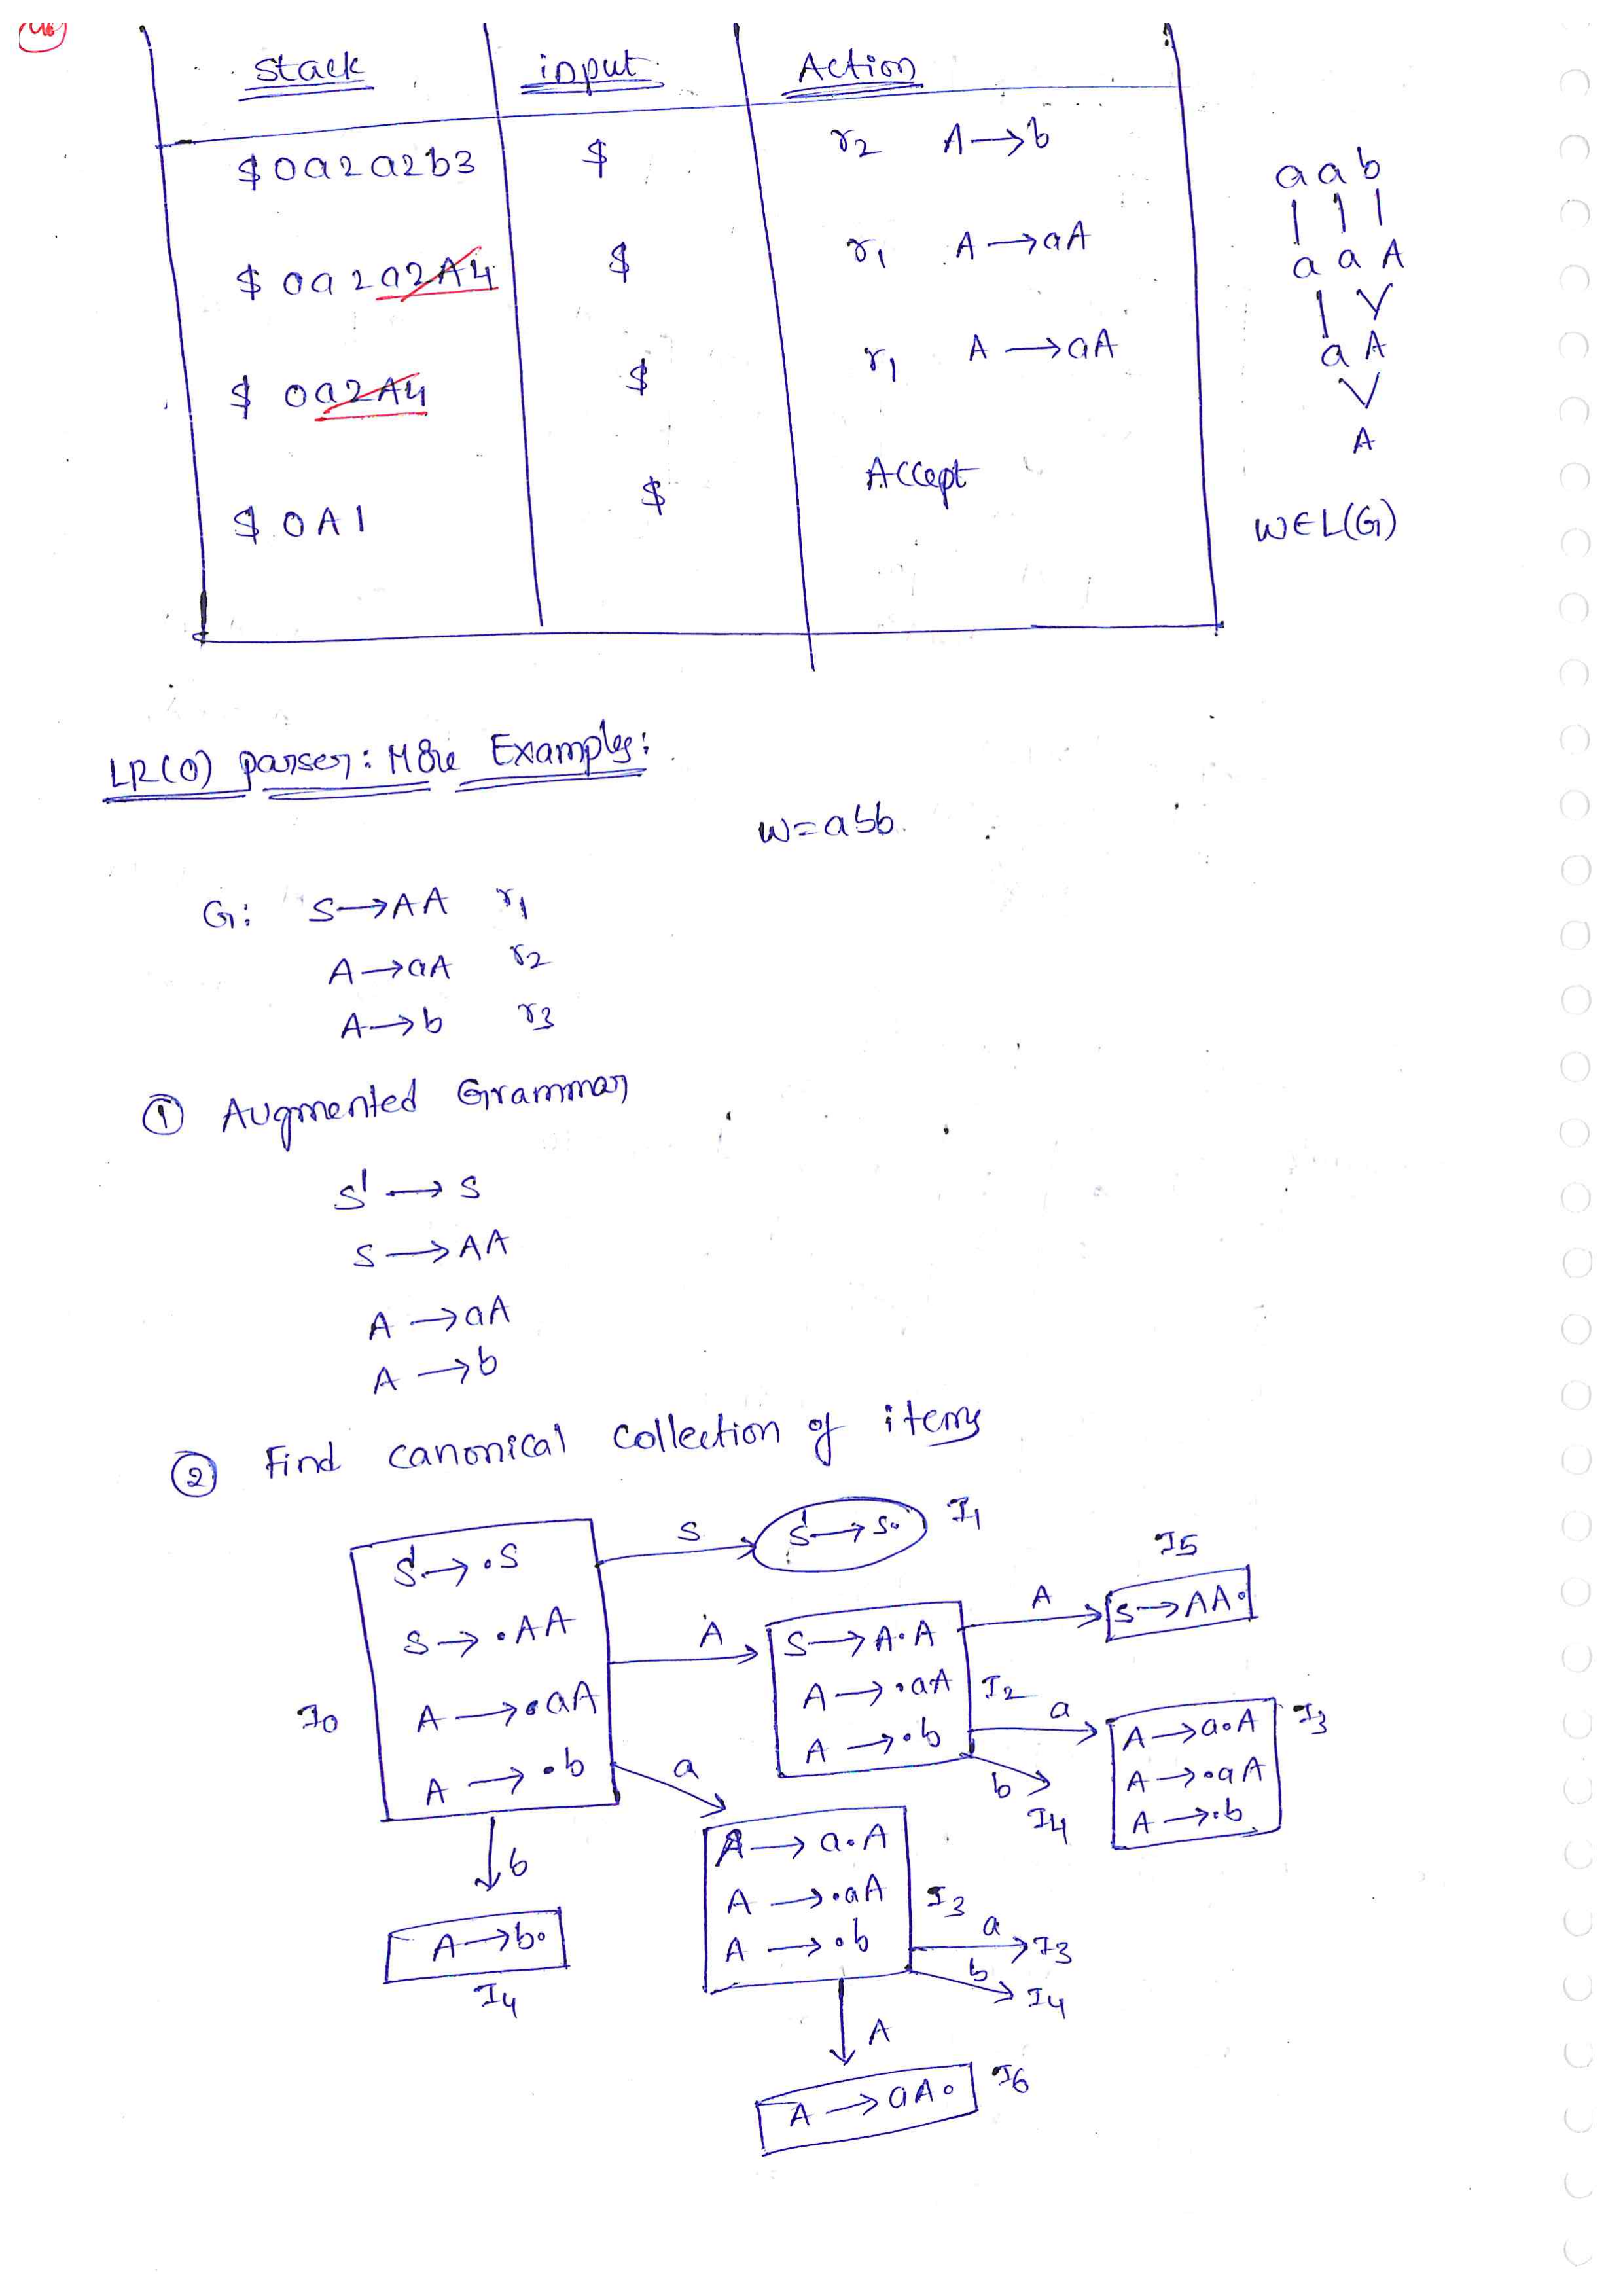 Stack input Action
$0a2a2b3 $ r2 A→b
$0a2a2A4 $ r1 A→aA
$0a2A4 $ r1 A→aA
$0A1 $ Accept
aab
aaA
aA
A
W∈L(G)
LR(0) parser: More Examples:
w=abb.
G: S→AA r1
A→aA r2
A→b r3
① Augmented Grammar
S'→S
S→AA
A→aA
A→b
② Find canonical collection of items
I0
S'→.S
S→.AA
A→.aA
A→.b
S
S'→S.
I1
A
S→A.A
A→.aA
A→.b
I2
A
S→AA.
I5
a
A→a.A
A→.aA
A→.b
I3
b
I4
a
A→a.A
A→.aA
A→.b
I3
a
I3
b
I4
b
A→b.
I4
A
A→aA.
I6